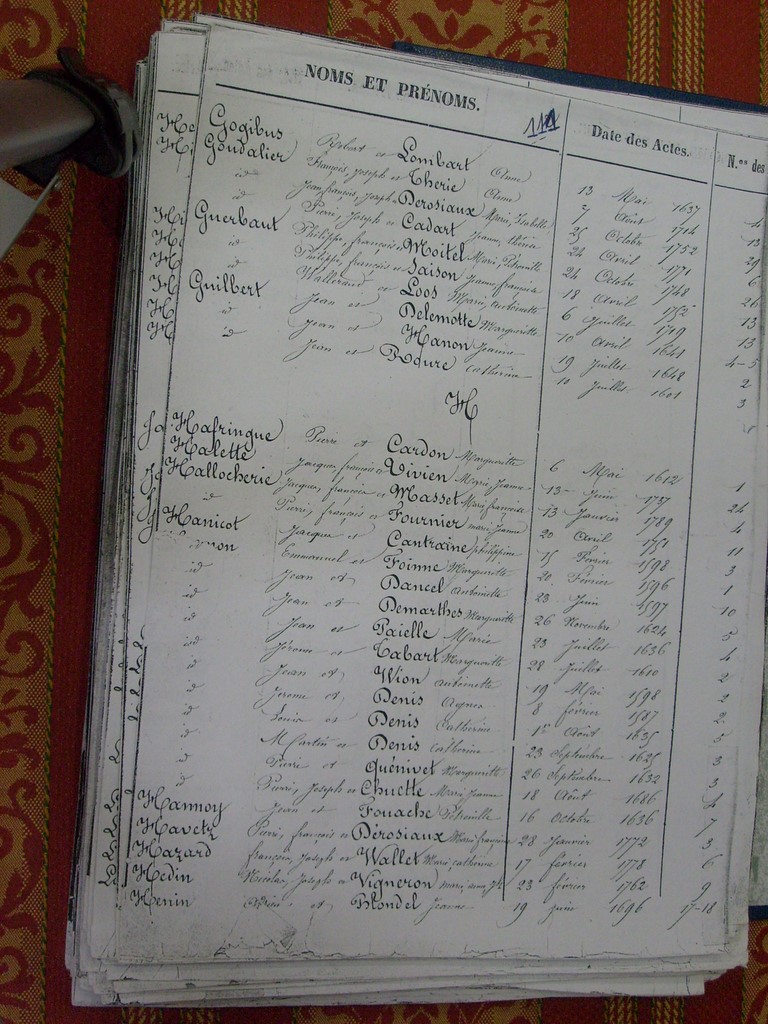 NOMS ET PRÉNOMS. 114 Date des Actes. N.os des
Gogibus Robert et Lombart Anne 13 Mai 1637 4
Gondalier François, Joseph et Therie Anne 7 Août 1714 13
id Jean françois, Joseph Derosiaux Marie, Isabelle 25 Octobre 1752 29
id Pierre, Joseph et Cadart Jeanne, thérèse 24 Avril 1771 6
Guerbaut Philippe, françois et Moitel Marie, Pétronille 24 Octobre 1748 26
id Philippe, françois et Saison Jeanne françoise 18 Avril 1752 13
id Walleraud et Loos Marie, antoinette 6 Juillet 1719 13
Guilbert Jean et Delemotte Marguerite 10 Avril 1641 4-5
id Jean et Hanon Jeanne 19 Juillet 1648 2
id Jean et Roure Catherine 10 Juillet 1601 3
H
Hafringue Pierre et Cardon Marguerite 6 Mai 1612 1
Halette Jacques, françois et Vivien Marie, Jeanne 13 Juin 1737 24
Hallocherie Jacques, francois et Masset Marie francoise 13 Janvier 1789 4
id Pierre, françois et Fournier marie Jeanne 20 Avril 1751 11
Hanicot Jacques et Cantraine philippine 15 Fevrier 1598 3
non Emmanuel et Foinne Marguerite 20 Février 1596 1
id Jean et Dancel Antoinette 23 Juin 1597 10
id Jean et Demarthes Marguerite 26 Novembre 1624 5
id Jean et Paielle Marie 23 Juillet 1636 4
id Jérome et Tabart Marguerite 22 Juillet 1610 2
id Jean et Wion antoinette 19 Mai 1598 2
id Jerome et Denis Agnes 8 fevrier 1587 2
id Louis et Denis Catherine 1er Août 1635 5
id Martin et Denis Catherine 23 Septembre 1625 3
id Pierre et Quénivet Marguerite 26 Septembre 1632 3
id Pierre, Joseph et Chuette Marie Jeanne 18 Août 1686 4
Hannoy Jean et Fouache Pétronille 16 Octobre 1636 7
Havetz Pierre, françois et Dérosiaux Marie francoise 28 Janvier 1772 3
Hazard françois, Joseph et Wallet Marie, catherine 17 février 1778 6
Hedin Nicolas, Joseph et Vigneron marie 23 février 1762 9
Henin et Blondel Jeanne 19 juin 1696 17-18